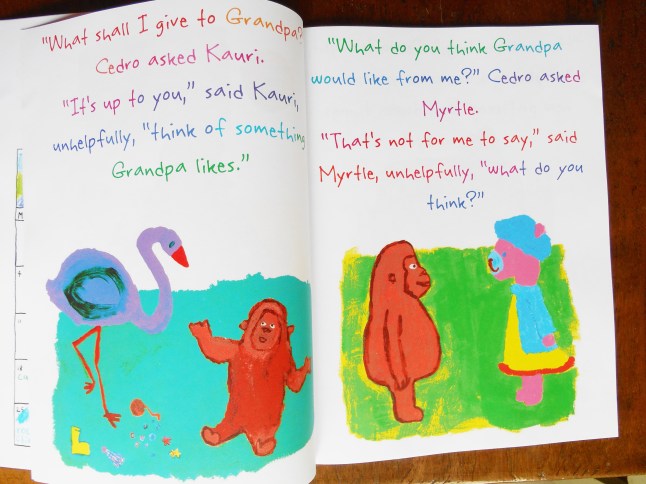 "What shall I give to Grandpa?"
Cedro asked Kauri.
"It's up to you," said Kauri,
unhelpfully, "think of something
Grandpa likes."
"What do you think Grandpa
would like from me?" Cedro asked
Myrtle.
"That's not for me to say," said
Myrtle, unhelpfully, "what do you
think?"